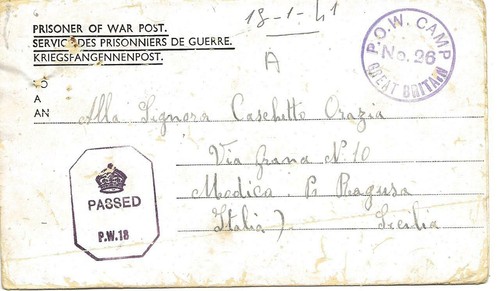 18-1-41
PRISONER OF WAR POST.
SERVICE DES PRISONNIERS DE GUERRE.
KRIEGSFANGENNENPOST.
P.O.W. CAMP
No. 26
GREAT BRITAIN
A
TO
A
AN
Alla Signora Caschetto Orazia
Via Grana N. 10
Modica Pr Ragusa
Italia) Sicilia
PASSED
P.W.18